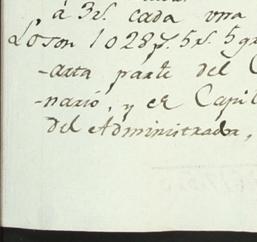 á 3rs. cada una
Loson 10287. 5rs. 5q
-arta parte del C
-nario, y el Capi
del Administrador,